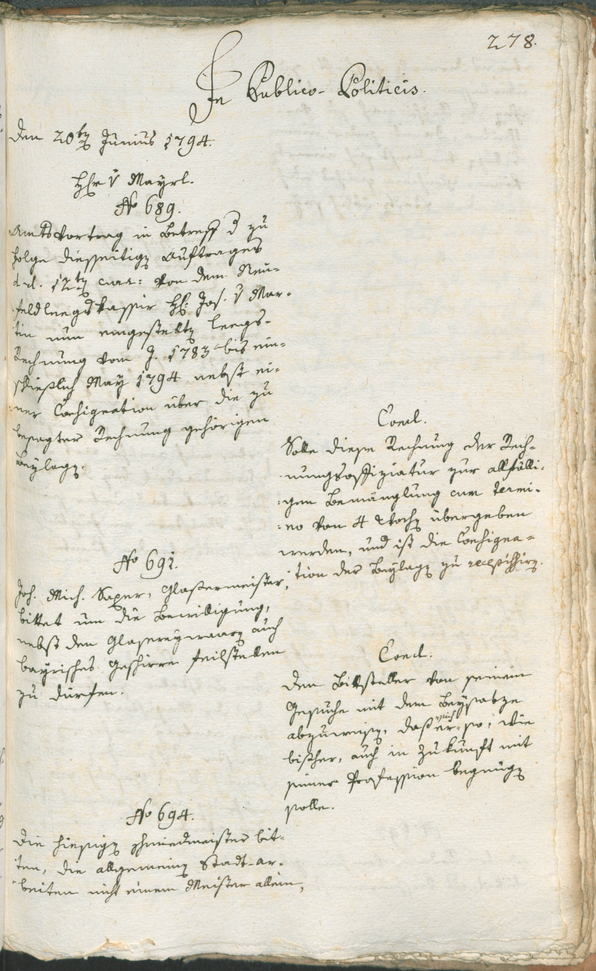 278.
In Publico-Politicis.
Den 20ten Junius 1794.
Hr. v Mayrl.
No 689.
Amtsvortrag in Betreff d zu
folge diesseitigen Auftrages
d. d. 12ten cur: von dem Neu-
feldleegskassir H: Jos. v Mar-
tin nun eingestelten Leegs-
Rechnung vom J. 1783 bis ein-
schließlich May 1794 nebst ei-
ner Consignation über die zu
besagter Rechnung gehörigen
Beylagen.
Concl.
Solle diese Rechnung der Rech-
nungsoffiziatur zur allfälli-
gen Bemänglung cum termi-
no von 4 Wochen übergeben
werden, und ist die Consigna-
tion der Beylagen zu
No 691.
Joh. Mich. Saxer, Glasermeister,
bittet um die Bewilligung,
nebst den Glasereywaaren auch
bayrisches Geschirr feilstellen
zu dürfen.
Concl.
Den Bittsteller von seinem
Gesuche mit dem Beysatze
abzuweisen, daß er sich, so, wie
bisher, auch in Zukunft mit
seiner Profession begnügen
solle.
No 694.
Die hiesigen Schmiedmeister bit-
ten, die allgemeinen Stadt-ar-
beiten nicht einem Meister allein,